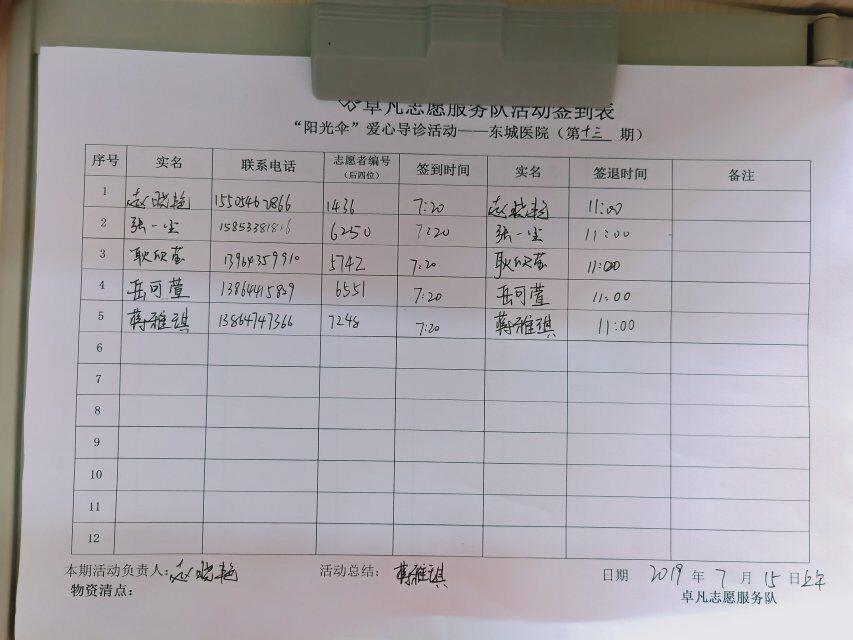 卓凡志愿服务队活动签到表
“阳光伞”爱心导诊活动——东城医院（第十三期）
序号 实名 联系电话 志愿者编号（后四位） 签到时间 实名 签退时间 备注
1 赵晓艳 15505462866 1436 7:20 赵晓艳 11:00
2 张一尘 15853381816 6250 7:20 张一尘 11:00
3 耿欣莹 13964359910 5742 7:20 耿欣莹 11:00
4 岳可萱 13864415839 6551 7:20 岳可萱 11:00
5 蒋雅琪 13864747366 7248 7:20 蒋雅琪 11:00
6
7
8
9
10
11
12
本期活动负责人：赵晓艳 活动总结：蒋雅琪 日期 2019 年 7 月 15 日上午
物资清点： 卓凡志愿服务队